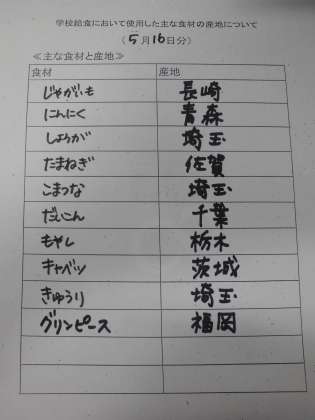 学校給食において使用した主な食材の産地について
(5月16日分)
≪主な食材と産地≫
食材 産地
じゃがいも 長崎
にんにく 青森
しょうが 埼玉
たまねぎ 佐賀
こまつな 埼玉
だいこん 千葉
もやし 栃木
キャベツ 茨城
きゅうり 埼玉
グリンピース 福岡